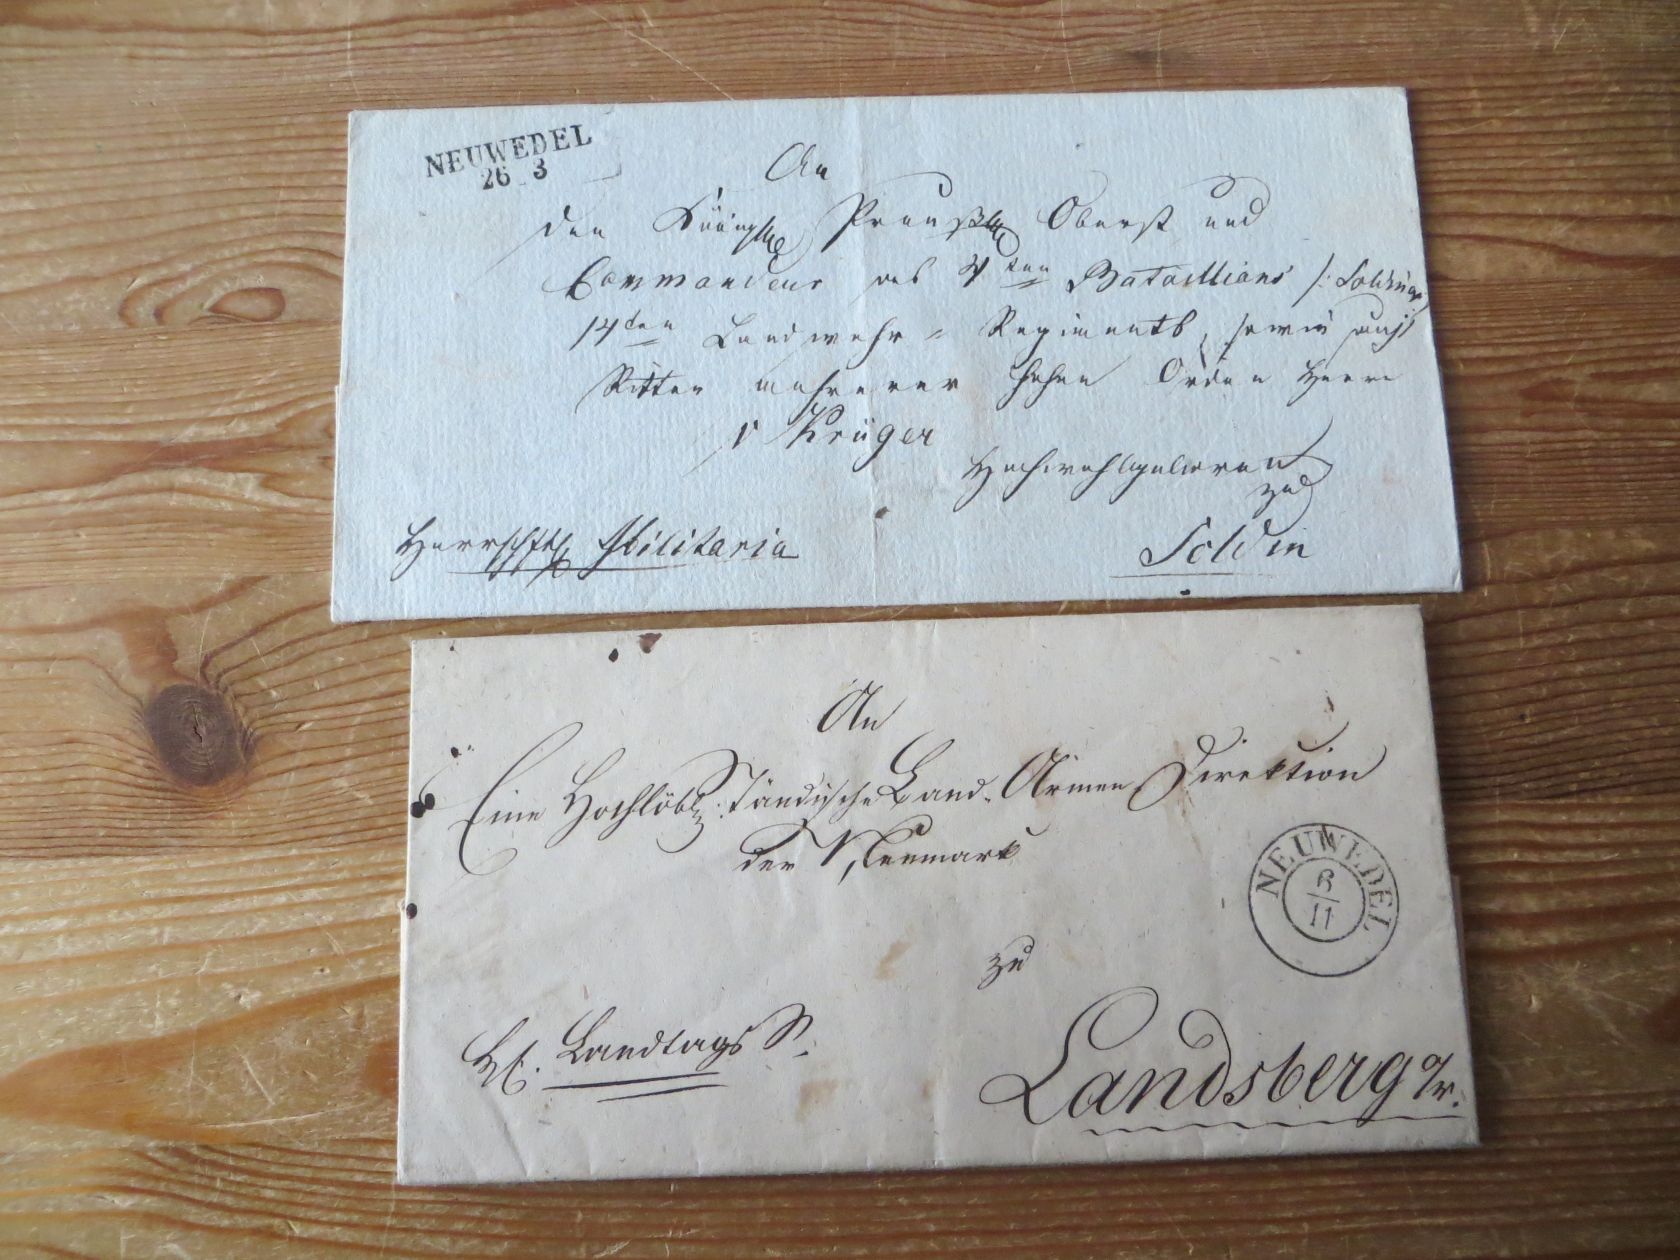 NEUWEDEL
26 3
An
den Königlich Preußischen Oberst und
Commandeur des ten Bataillons /: Soldin
14ten Landwehr-Regiments, sowie auch
Ritter mehrerer hohen Orden Herrn
v Krüger
Hochwohlgeboren
zu
Herrschftl Militaria
Soldin
An
Eine Hochlöbl: Ständische Land-Armen Direktion
der Neumark
NEUWEDEL
6/11
zu
Landtags S.
Landsberg a/w.